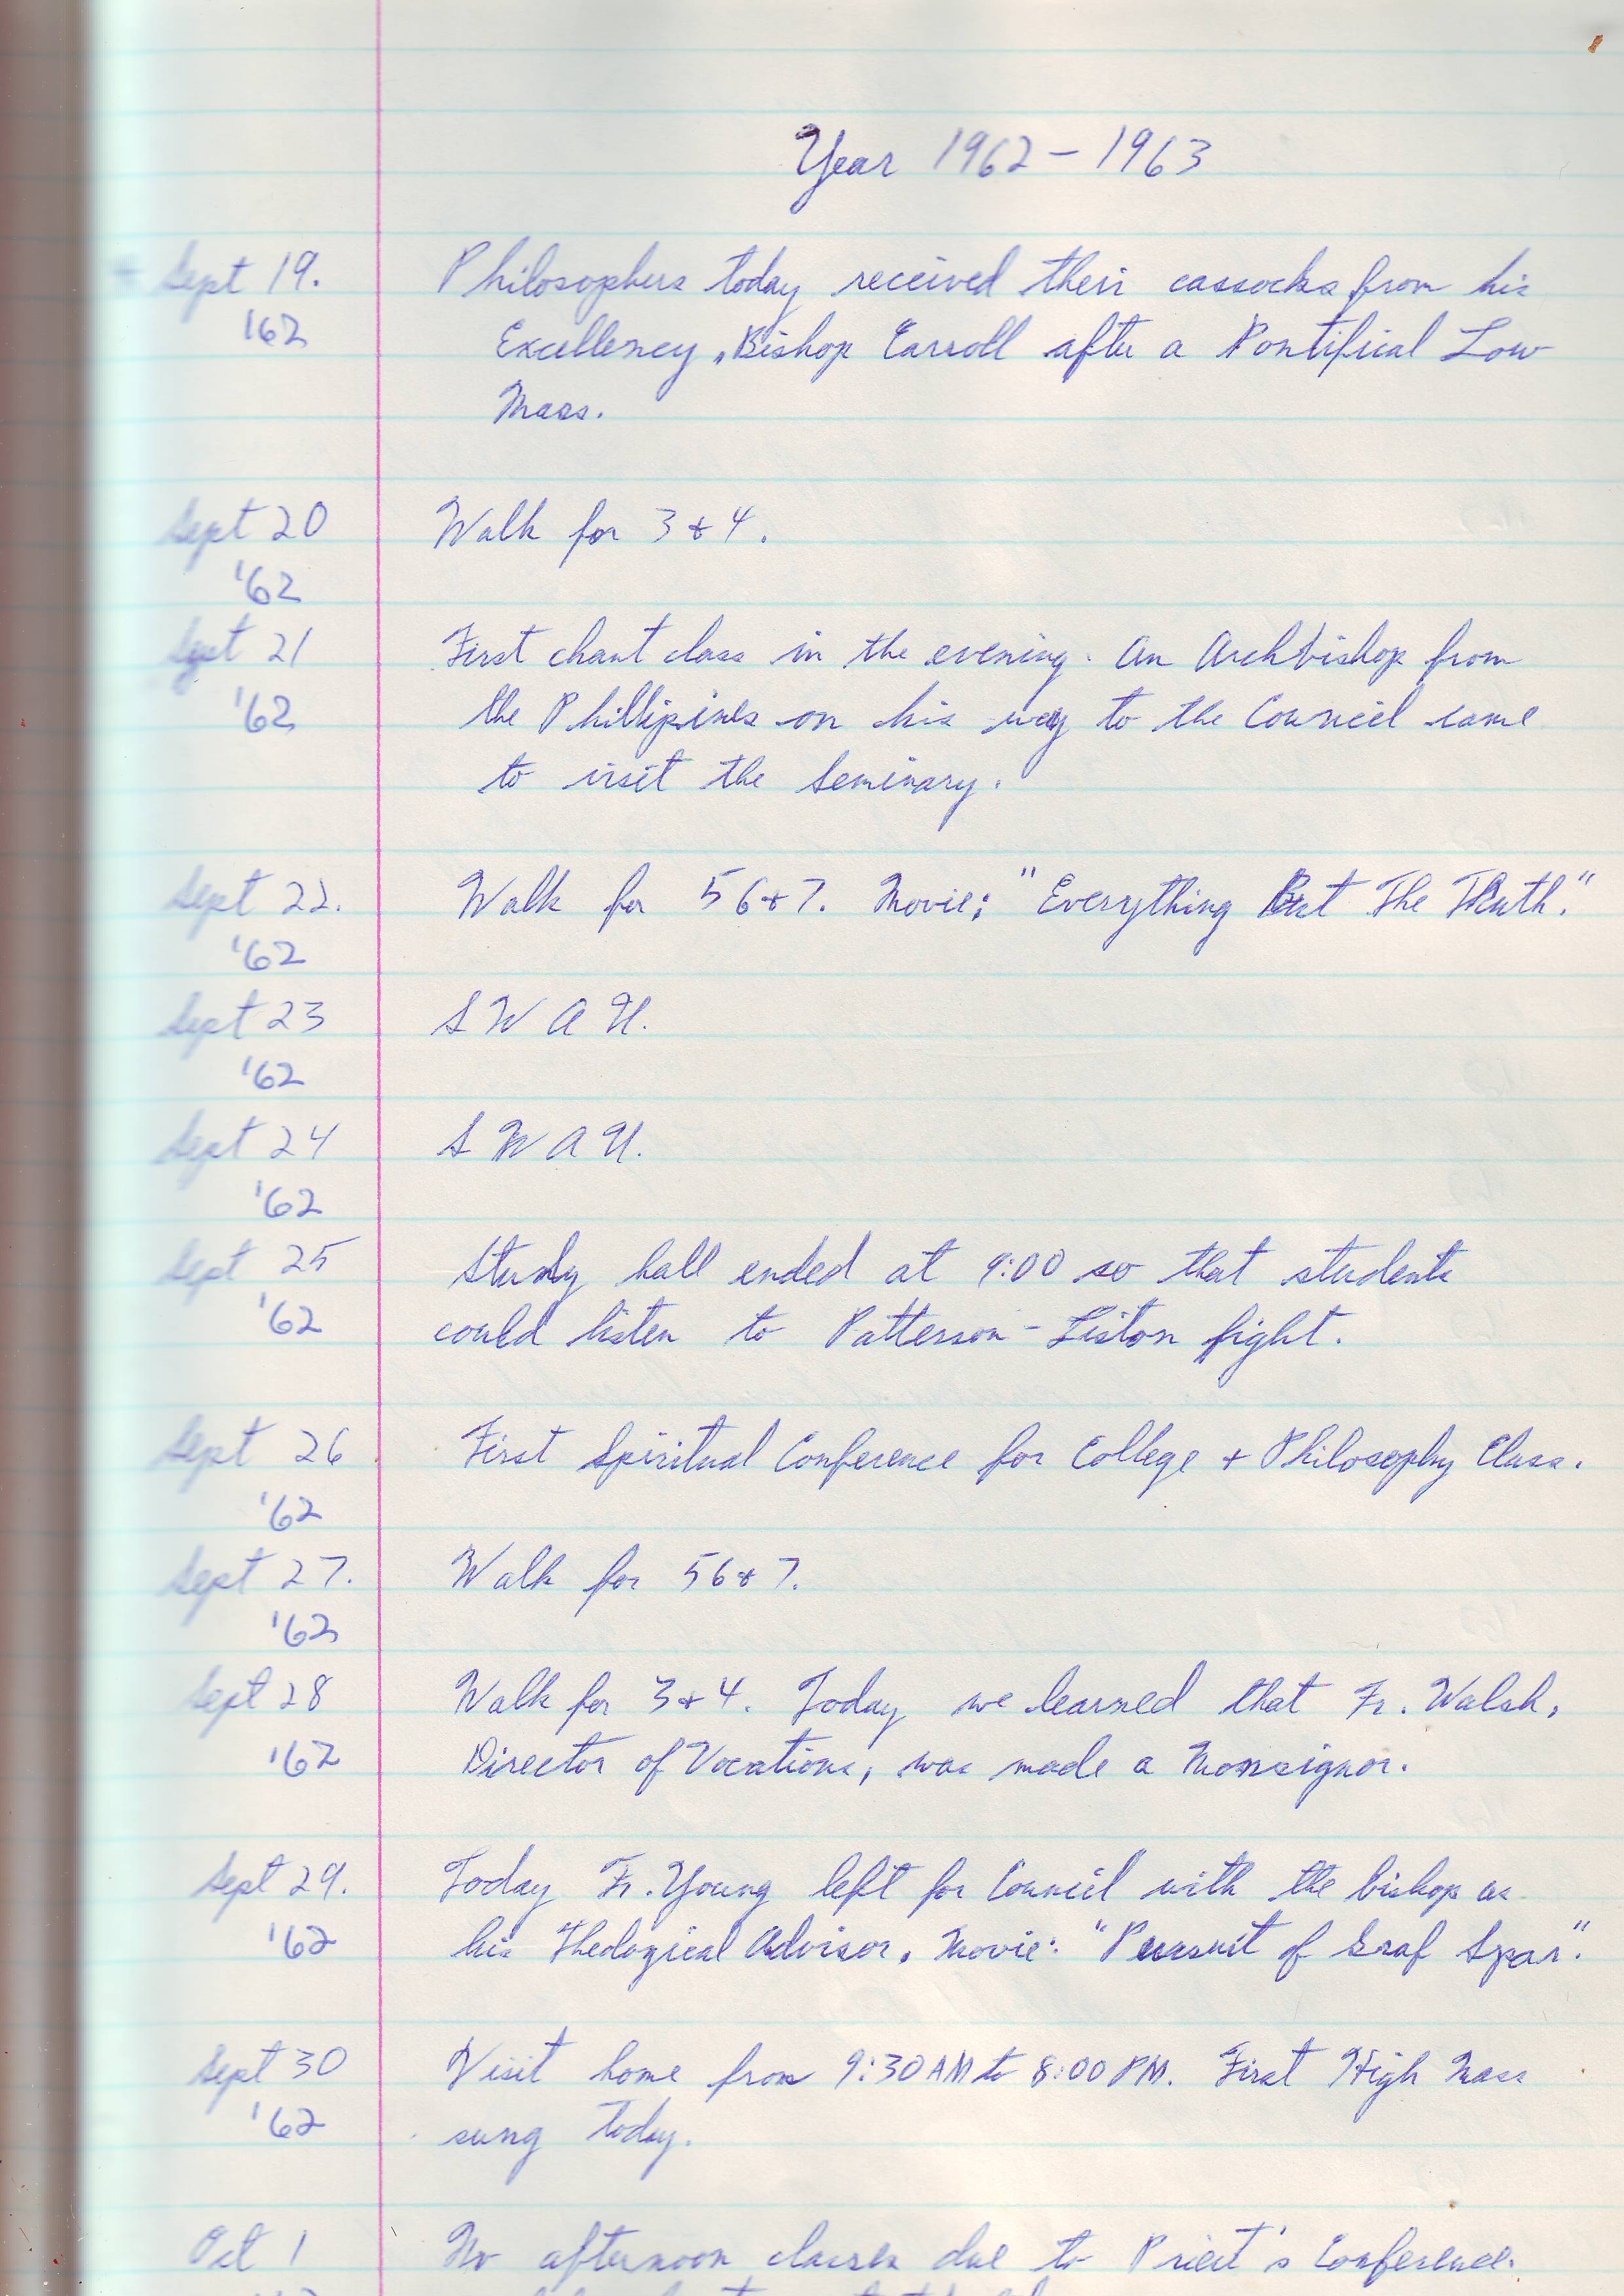 Year 1962-1963
Sept 19. Philosophers today received theri cassocks from his
'62 Excellency, Bishop Carroll after a Pontifical Low
Mass.
Sept 20 Walk for 3 & 4.
'62
Sept 21 First chant class in the evening. An Archbishop from
'62 the Phillipines on his way to the Council came
to visit the Seminary.
Sept 22. Walk for 5 6 & 7. Movie; "Everything But The Truth."
'62
Sept 23 S W A U.
'62
Sept 24 S W A U.
'62
Sept 25 Study hall ended at 9:00 so that students
'62 could listen to Patterson-Liston fight.
Sept 26 First Spiritual Conference for College & Philosophy Class.
'62
Sept 27. Walk for 5 6 & 7.
'62
Sept 28 Walk for 3 & 4. Today we learned that Fr. Walsh,
'62 Director of Vocations, was made a Monsignor.
Sept 29. Today Fr. Young left for Council with the bishop as
'62 his Theological Advisor. Movie: "Pursuit of Graf Spar".
Sept 30 Visit home from 9:30 AM to 8:00 PM. First High Mass
'62 sung today.
Oct 1 No afternoon classes due to Priest's Conference.